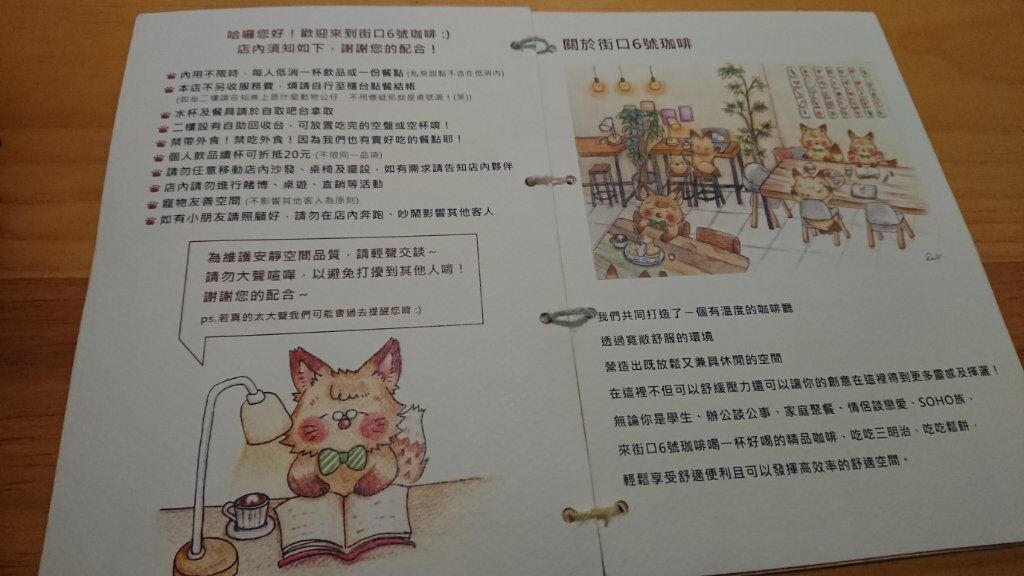 哈囉您好！歡迎來到街口6號珈琲 :)
店內須知如下，謝謝您的配合！
內用不限時，每人低消一杯飲品或一份餐點 (私房甜點不含在低消內)
本店不另收服務費、煩請自行至櫃台點餐結帳
(即坐二樓請告知桌上是什麼動物公仔，不用懷疑那就是桌號唷！(笑))
水杯及餐具請於自取吧台拿取
二樓設有自助回收台，可放置吃完的空盤或空杯唷！
禁帶外食！禁吃外食！因為我們也有賣好吃的餐點耶！
個人飲品續杯可折抵20元 (不限同一品項)
請勿任意移動店內沙發、桌椅及擺設，如有需求請告知店內夥伴
店內請勿進行賭博、桌遊、直銷等活動
寵物友善空間 (不影響其他客人為原則)
如有小朋友請照顧好，請勿在店內奔跑、吵鬧影響其他客人
為維護安靜空間品質，請輕聲交談~
請勿大聲喧嘩，以避免打擾到其他人唷！
謝謝您的配合~
ps.若真的太大聲我們可能會過去提醒您唷 :)
關於街口6號珈琲
我們共同打造了一個有溫度的咖啡廳
透過寬敞舒服的環境
營造出既放鬆又兼具休閒的空間
在這裡不但可以舒緩壓力還可以讓你的創意在這裡得到更多靈感及揮灑！
無論你是學生、辦公談公事、家庭聚餐、情侶談戀愛、SOHO族，
來街口6號珈琲喝一杯好喝的精品咖啡、吃吃三明治，吃吃鬆餅，
輕鬆享受舒適便利且可以發揮高效率的舒適空間。